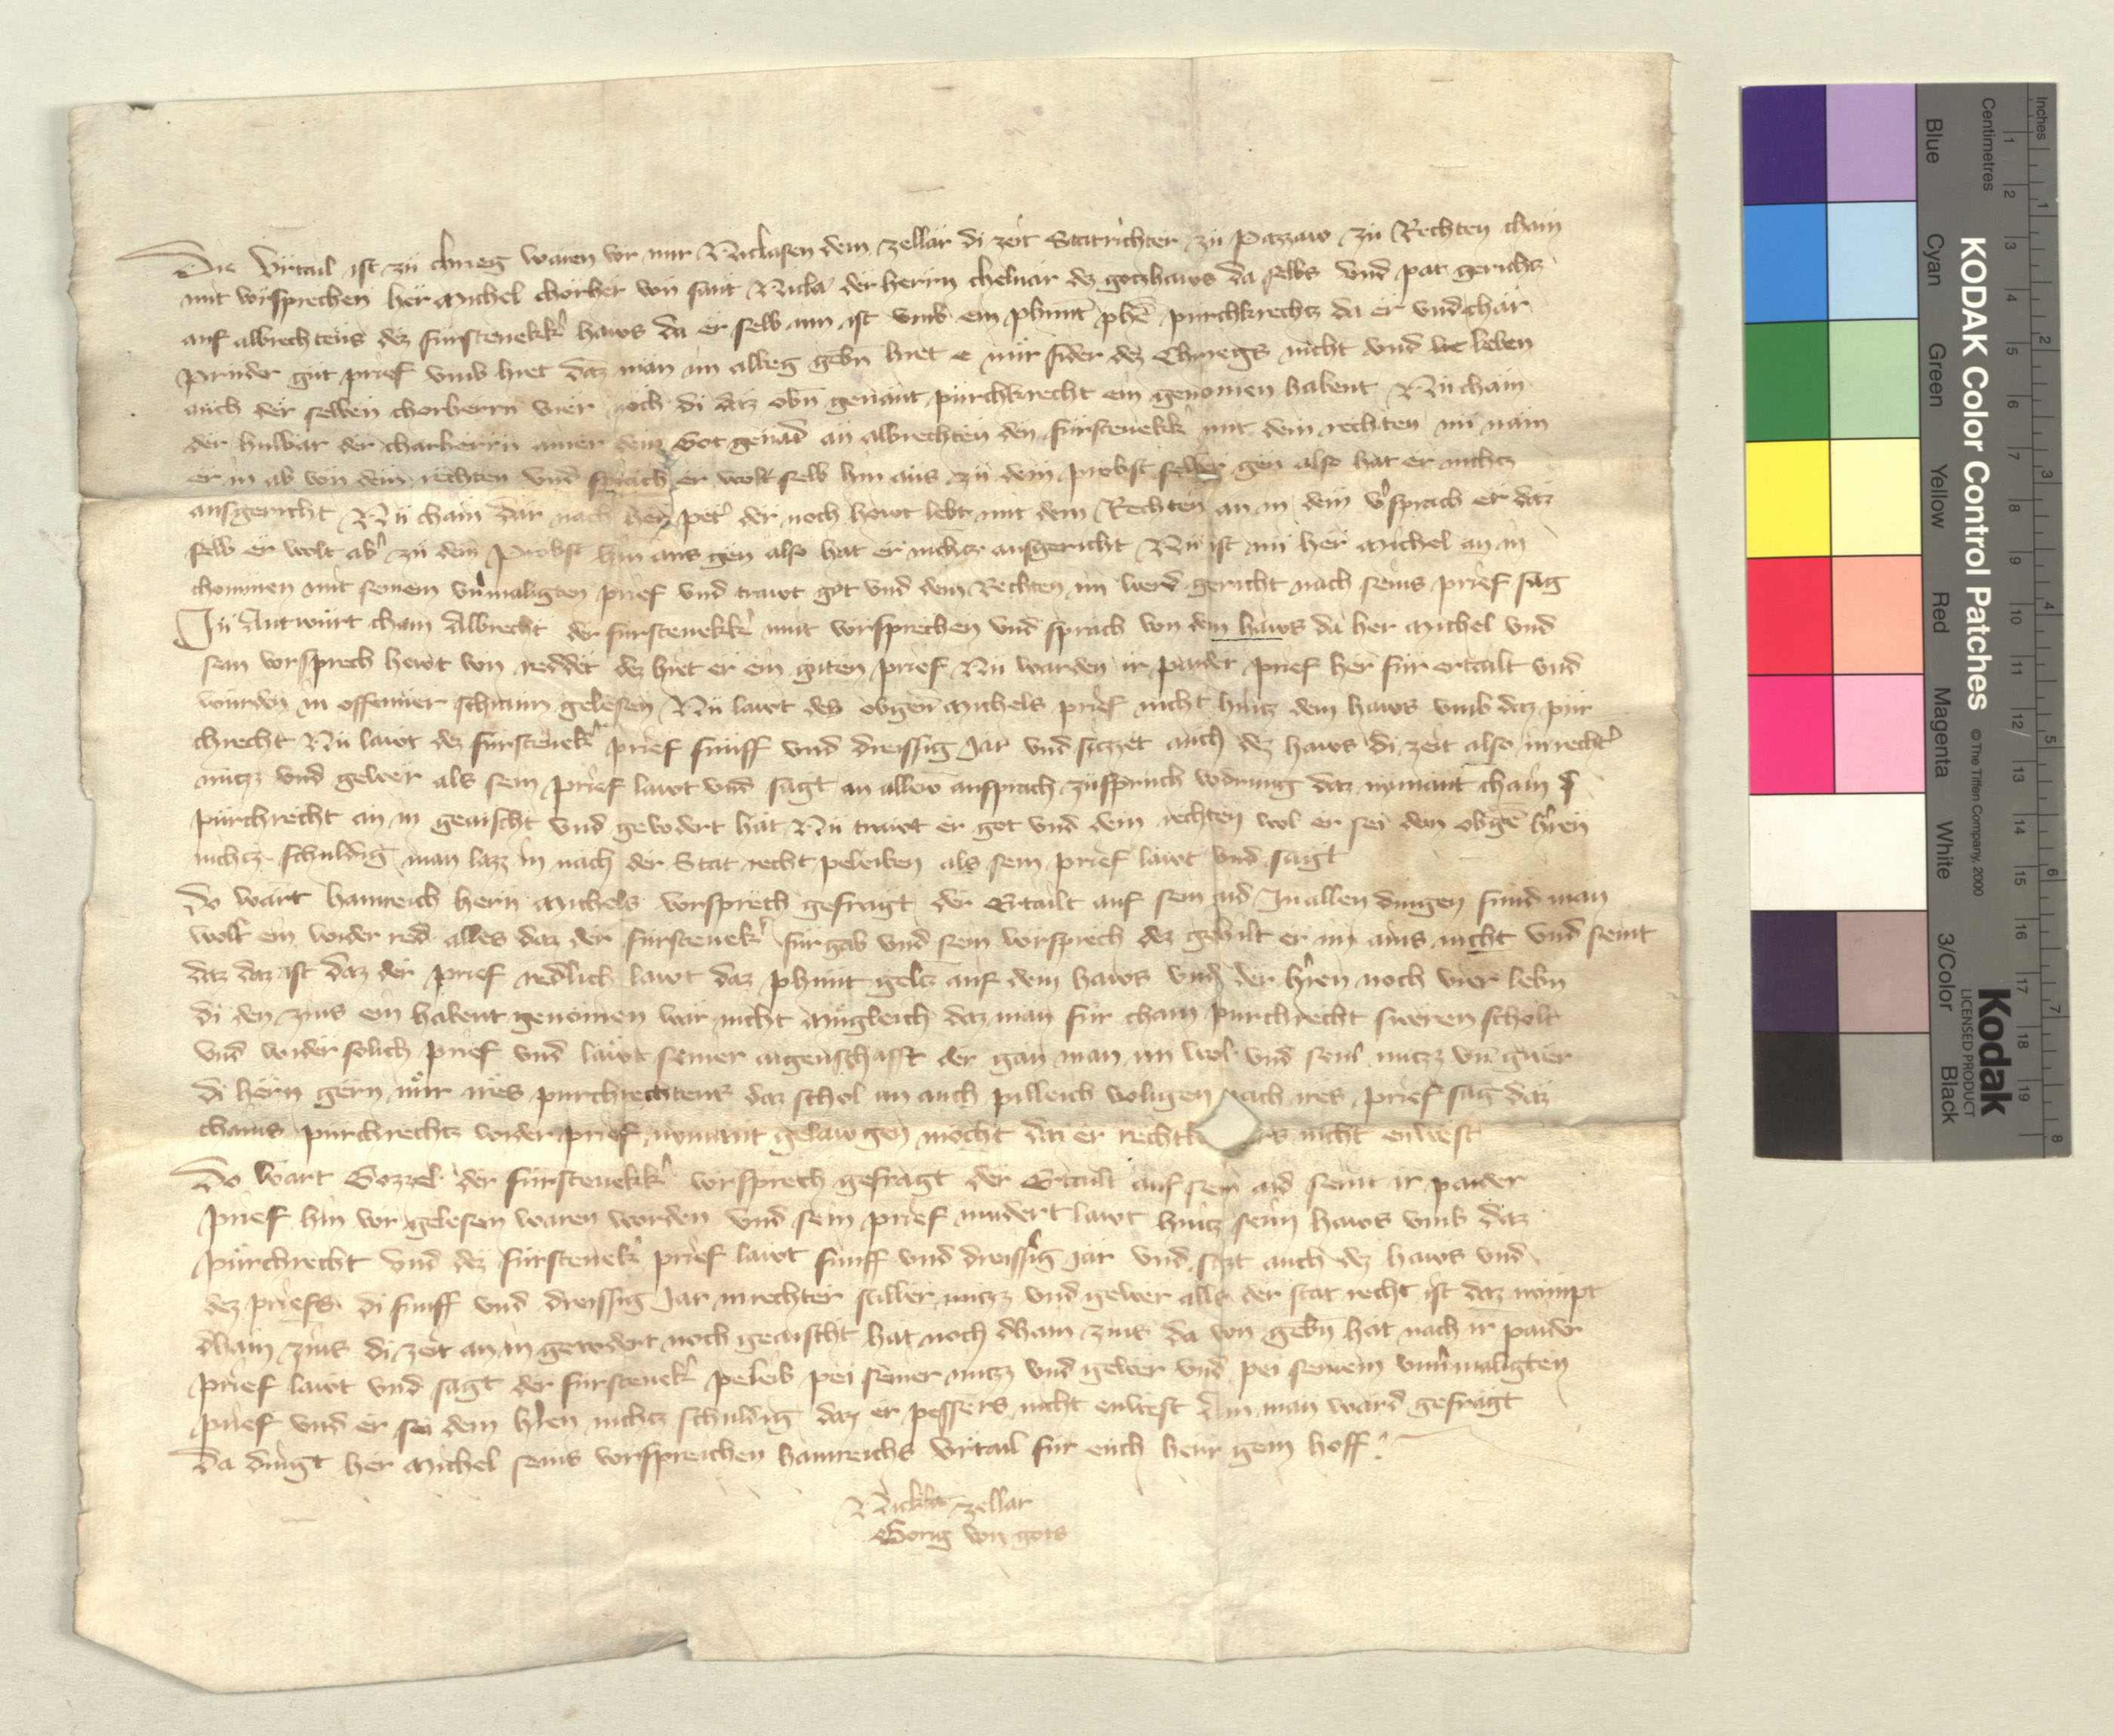 Die Urtail ist zü chrieg waren vor mir Niclasen dem zellär di zeit Statrichter zü Pazzaw zü Rechten cham
mit vorsprechen her Michel chorher von sant Nicla der herrn chelnär dez gotzhaws da selbs und pat gerichtz
auf albrechtens dez fürstenekkr haws da er selb inn ist umb ein phunt phen purchkrechtz da er und char
prüder güt prief umb hiet daz man im albeg gebn hiet e nür sider dez Chriegs nicht und leben
auch der selben chorherrn vier noch di daz obn genant purchkrecht ein genomen habent Nü cham
der der charherrn ainer dem Got genad an albrechten den fürstenekk mit dem rechten nü nam
er in ab von dem rechten und sprach er wolt selb hin aus zü dem probst selber gen also hat er nichtz
ausgericht Nü cham dar nach her peter der noch hewt lebt mit dem Rechten an in dem vsprach er daz
selb er wolt abr zü dem Probst hin aus gen also hat er nichtz ausgericht Nü ist nü her Michel an in
chomen mit seinem prief und trawt got und dem Rechten im werd gericht nach seins prief sag
In Antwürt cham Albrecht der fürstenekkr mit vorsprechen und sprach von dem haws da her Michel und
sein vorsprech hewt von reddet dez hiet er ein guten prief Nü warden ir paider prief her für ertailt und
wurden in offenner schrann gelesen Nü lawt des obgen Michels prief nicht hintz dem haws umb daz pür
chrecht Nü lawt dez fürstenekr prief fünff und dreissig Jar und sitzzet auch dez haws di zeit also in rechtr
nutzz und gewer als sein prief lawt und sagt an allew ansprach züspruch vodrung daz nymant cham
pürchrecht an in geaischt und gevodert hat Nü trawt er got und dem rechten wol er sei den obgen hren
nichtz schuldig man lazz in nach der Stat recht peleiben als sein prief lawt und sagt
Do wart hainreich hern Michels vorsprech gefragt der Ertailt auf sein aid In allen dingen sind man
wolt ein vorder red alles daz der fürstenekr fürgab und sein vorsprech dez er im ains nicht und seint
daz daz ist daz der prief redlich lawt daz phunt geltz auf dem haws und der hren noch vier lebn
di den zins ein habent genomen wär nicht mügleich daz man für cham purchrecht sweren scholt
und vorder solich prief und lawt seiner aigenschafft der gan man im wol und seinl nutzz und gwer
di hern gern nür ires purchrechtens daz schol im auch pilleich volgen nach ires prief sag daz
chains purchrechtz vorder prief nymant gelawgen mocht daz er nicht enwest
Do wart Gozzel der fürstenekkr vorsprech gefragt der Ertailt auf sein aid seint ir paider
prief hin vor gelesen waren worden und sein prief nindert lawt hintz seim haws umb daz
pürchrecht und dez fürstenekr prief lawt fünff und dreissig jar und sitzt auch dez haws und
dez priefs di fünff und dreissig Jar in rechter stiller nutzz und gewer alls der stat recht ist daz nimpt
dhain zins di zeit an in gevodert noch geaischt hat noch dhain zins da von gebn hat nach ir paider
prief lawt und sagt der fürstenekr peleib pei seiner nutzz und gewer und pei seinem
prief und er sei dem hren nichtz schuldig daz er pessers nicht enwest man ward gefragt
Da dingt her Michel seins vorsprechen hainreichs Urtail für euch hern gem hoff
Nickla zellar
Gorig von